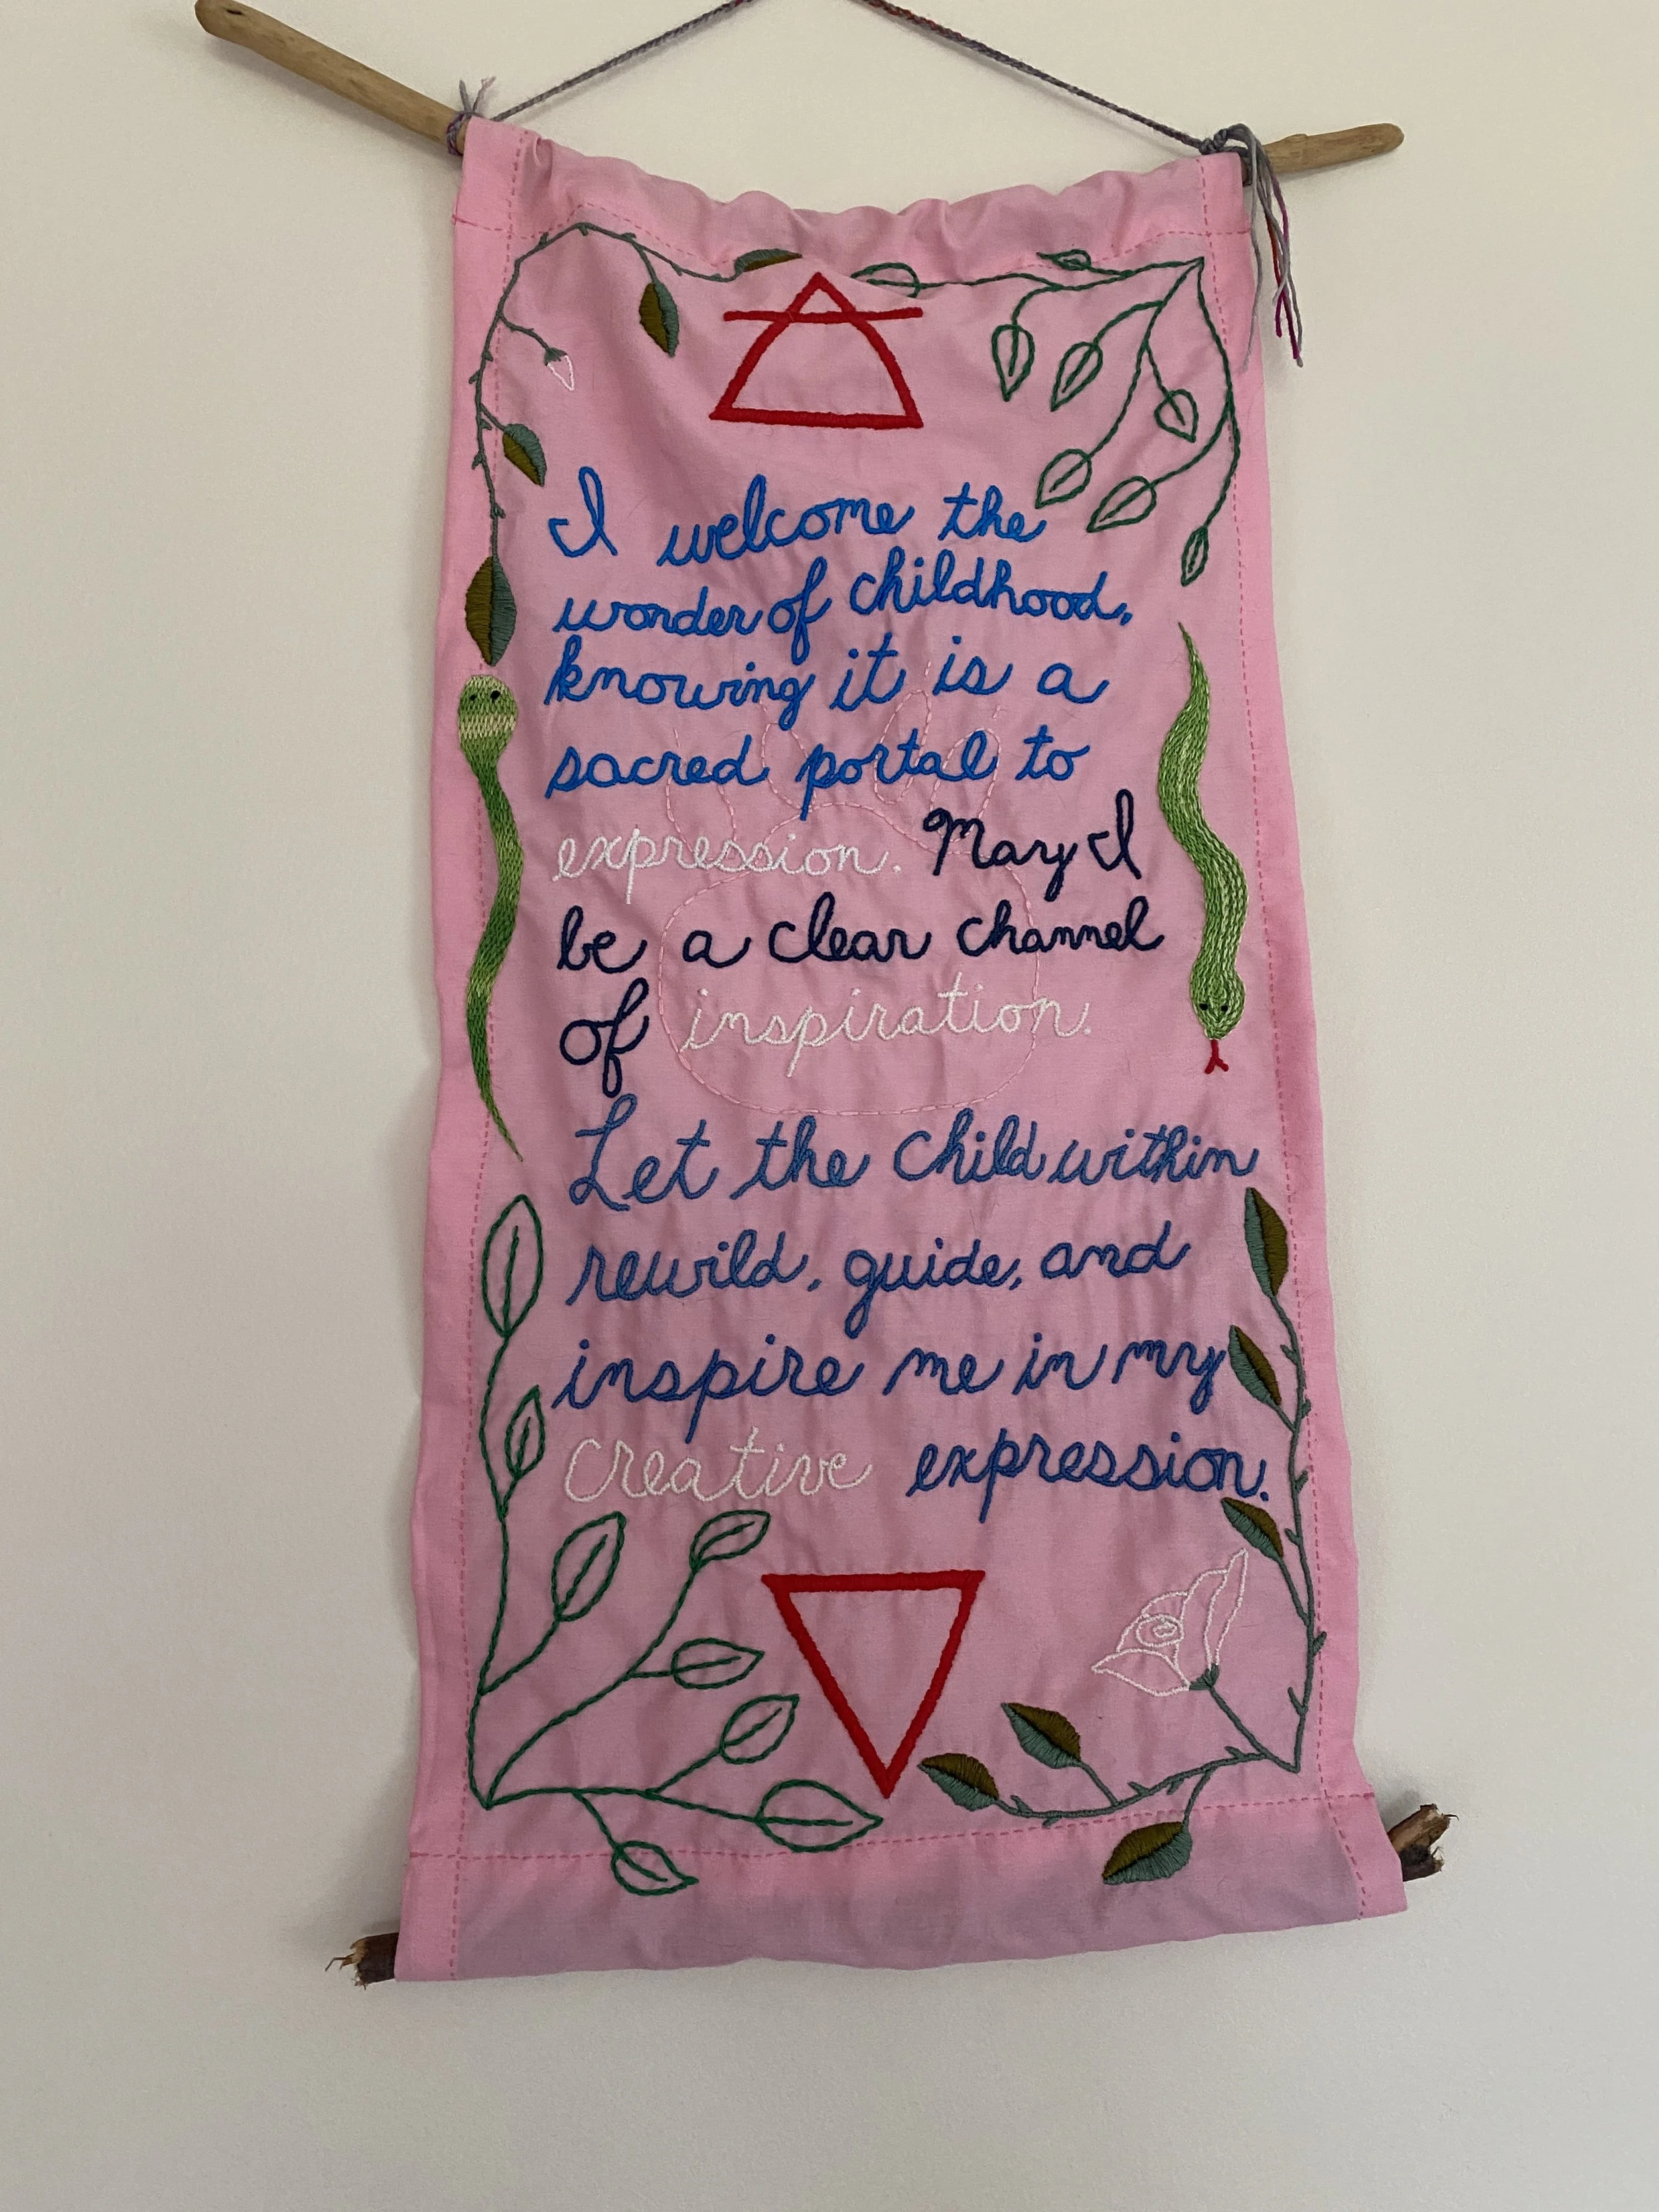 I welcome the
wonder of childhood,
knowing it is a
sacred portal to
expression. May I
be a clear channel
of inspiration.
Let the child within
rewild, guide, and
inspire me in my
creative expression.